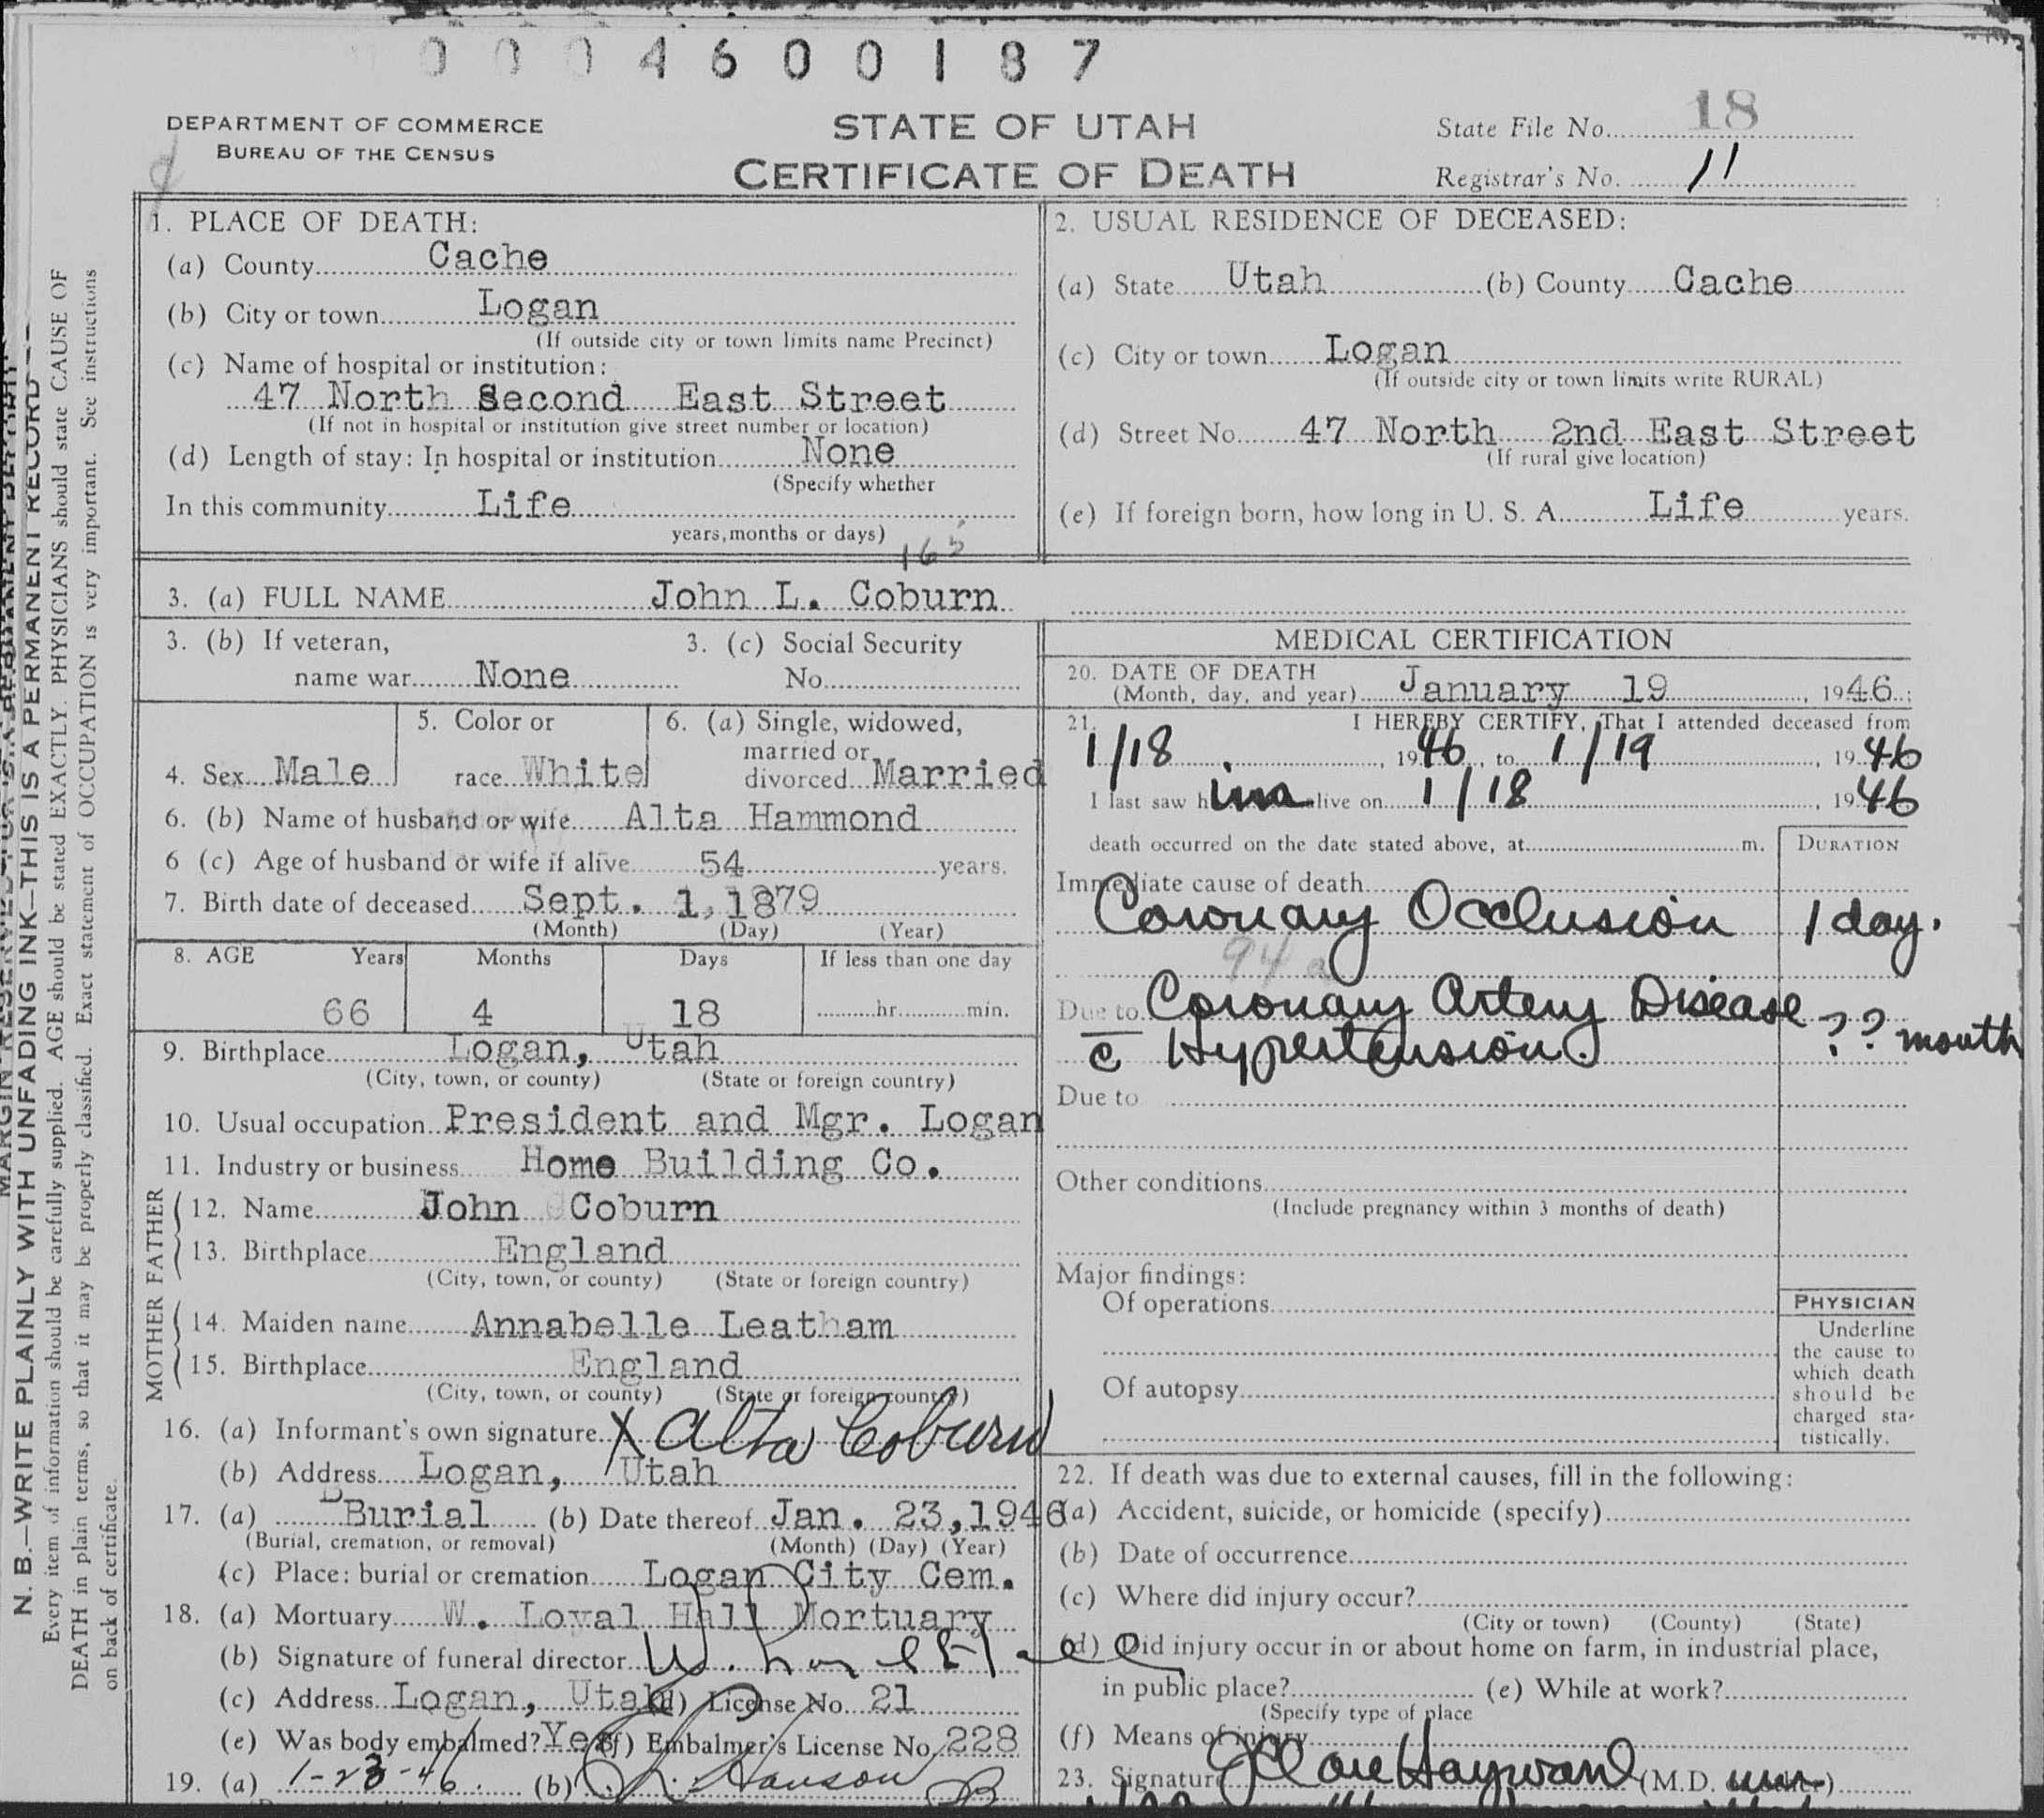 0004600187
DEPARTMENT OF COMMERCE
BUREAU OF THE CENSUS
STATE OF UTAH
CERTIFICATE OF DEATH
State File No. 18
Registrar's No. 11
1. PLACE OF DEATH:
(a) County Cache
(b) City or town Logan
(If outside city or town limits name Precinct)
(c) Name of hospital or institution:
47 North Second East Street
(If not in hospital or institution give street number or location)
(d) Length of stay: In hospital or institution None
(Specify whether
In this community Life
years, months or days)
165
2. USUAL RESIDENCE OF DECEASED:
(a) State Utah (b) County Cache
(c) City or town Logan
(If outside city or town limits write RURAL)
(d) Street No. 47 North 2nd East Street
(If rural give location)
(e) If foreign born, how long in U. S. A. Life years.
3. (a) FULL NAME John L. Coburn
3. (b) If veteran,
name war None
3. (c) Social Security
No.
4. Sex Male
5. Color or
race White
6. (a) Single, widowed,
married or
divorced Married
6. (b) Name of husband or wife Alta Hammond
6 (c) Age of husband or wife if alive 54 years.
7. Birth date of deceased Sept. 1, 1879
(Month) (Day) (Year)
8. AGE Years Months Days If less than one day
66 4 18 hr. min.
9. Birthplace Logan, Utah
(City, town, or county) (State or foreign country)
10. Usual occupation President and Mgr. Logan
11. Industry or business Home Building Co.
FATHER
12. Name John Coburn
13. Birthplace England
(City, town, or county) (State or foreign country)
MOTHER
14. Maiden name Annabelle Leatham
15. Birthplace England
(City, town, or county) (State or foreign country)
16. (a) Informant's own signature X Alta Coburn
(b) Address Logan, Utah
17. (a) Burial (b) Date thereof Jan. 23, 1946
(Burial, cremation, or removal) (Month) (Day) (Year)
(c) Place: burial or cremation Logan City Cem.
18. (a) Mortuary W. Loyal Hall Mortuary
(b) Signature of funeral director W. Loyal Hall
(c) Address Logan, Utah (d) License No. 21
(e) Was body embalmed? Yes (f) Embalmer's License No. 228
19. (a) 1-23-46. (b) Hanson
MEDICAL CERTIFICATION
20. DATE OF DEATH
(Month, day, and year) January 19, 1946;
21. I HEREBY CERTIFY, That I attended deceased from
1/18, 1946, to 1/19, 1946
I last saw him alive on 1/18, 1946
death occurred on the date stated above, at m.
DURATION
Immediate cause of death
Coronary Occlusion 1 day.
94 a
Due to Coronary Artery Disease
c̄ Hypertension. ?? month
Due to
Other conditions
(Include pregnancy within 3 months of death)
Major findings:
Of operations
Of autopsy
PHYSICIAN
Underline
the cause to
which death
should be
charged sta-
tistically.
22. If death was due to external causes, fill in the following:
(a) Accident, suicide, or homicide (specify)
(b) Date of occurrence
(c) Where did injury occur?
(City or town) (County) (State)
(d) Did injury occur in or about home on farm, in industrial place,
in public place? (e) While at work?
(Specify type of place
(f) Means of injury
23. Signature J Clare Hayward (M.D.
N. B.—WRITE PLAINLY WITH UNFADING INK—THIS IS A PERMANENT RECORD
Every item of information should be carefully supplied. AGE should be stated EXACTLY. PHYSICIANS should state CAUSE OF
DEATH in plain terms, so that it may be properly classified. Exact statement of OCCUPATION is very important. See instructions
on back of certificate.